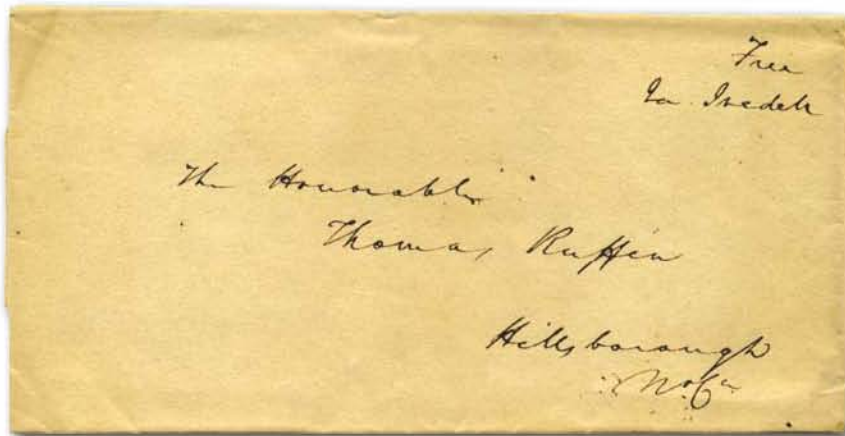 Free
Ja. Iredell
The Honorable
Thomas Ruffin
Hillsborough
No Ca